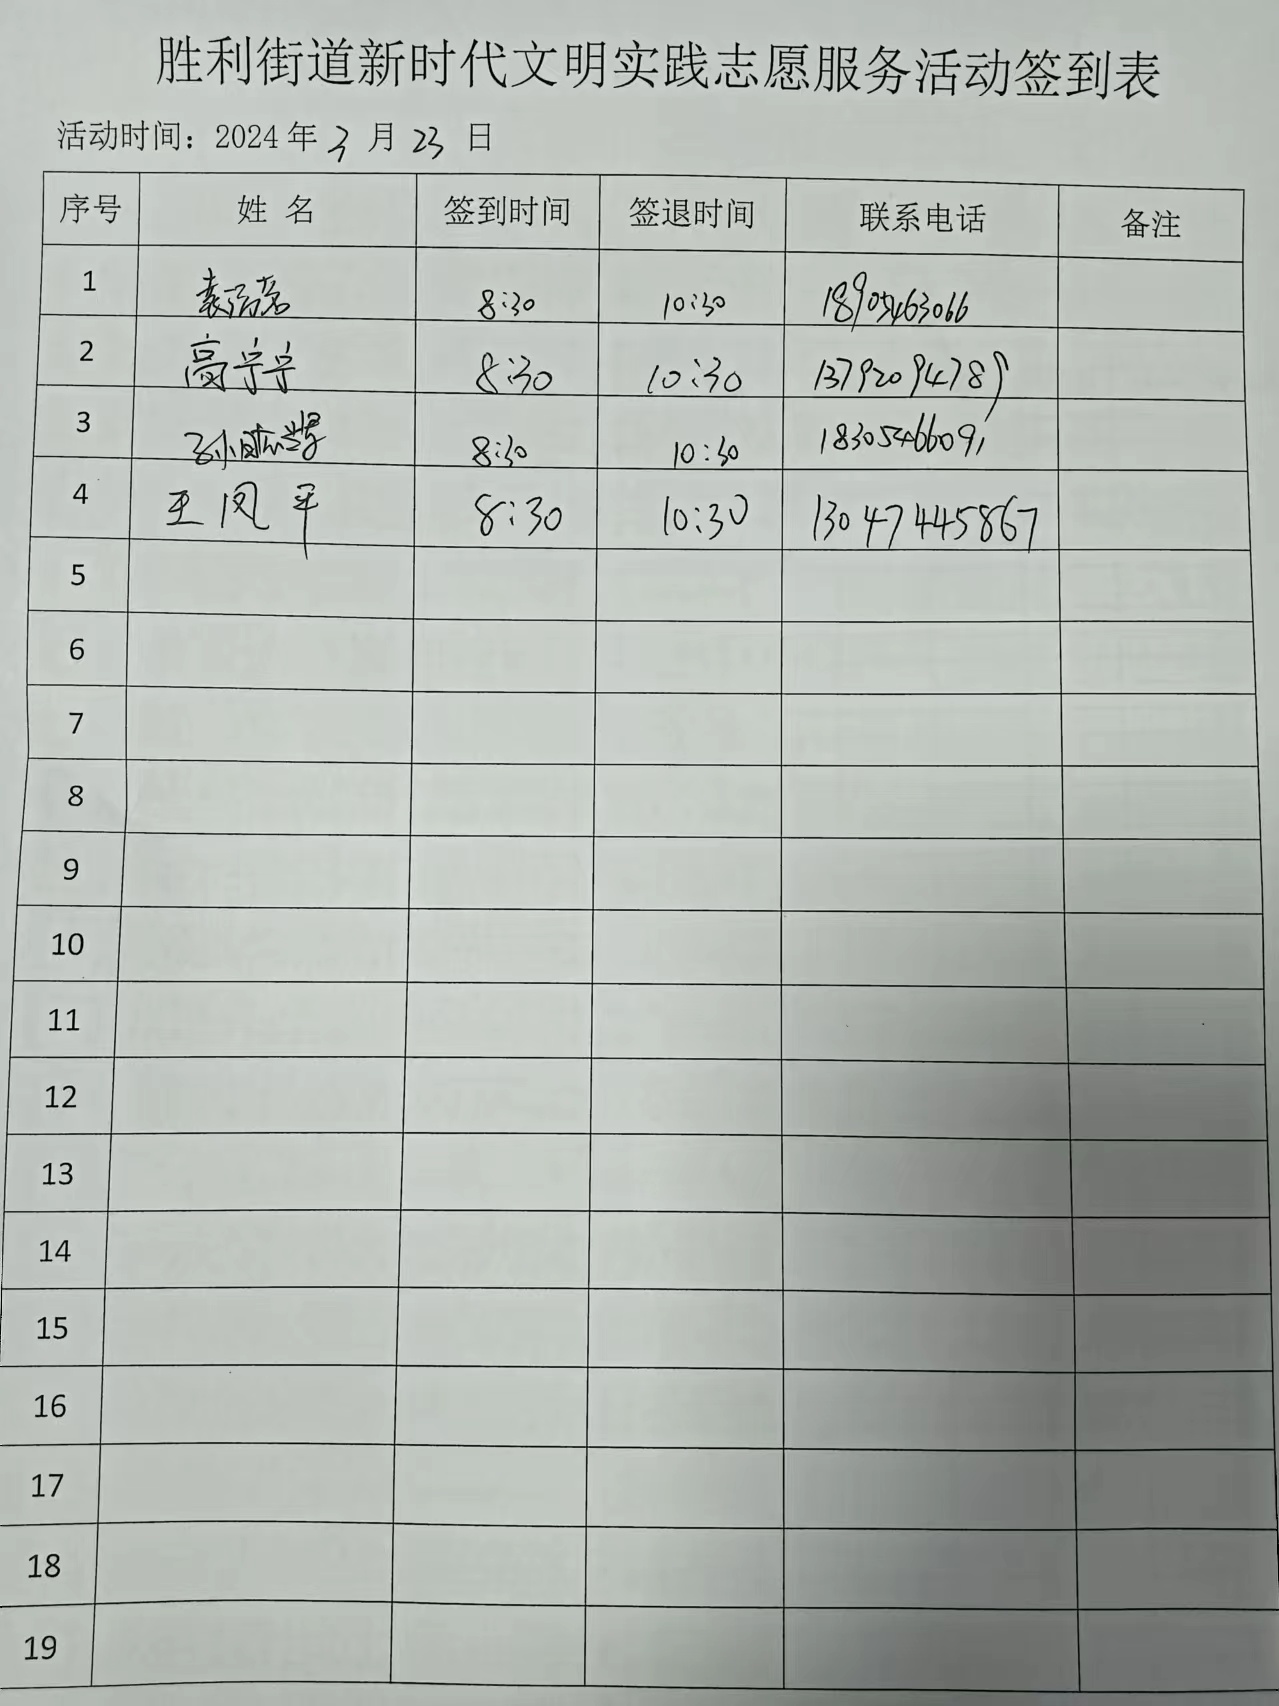 胜利街道新时代文明实践志愿服务活动签到表
活动时间：2024年 3 月 23 日
序号 姓 名 签到时间 签退时间 联系电话 备注
1 袁 8:30 10:30 18905463066
2 高宁宁 8:30 10:30 13792094789
3 孙 8:30 10:30 18305466091
4 王凤平 8:30 10:30 13047445867
5
6
7
8
9
10
11
12
13
14
15
16
17
18
19